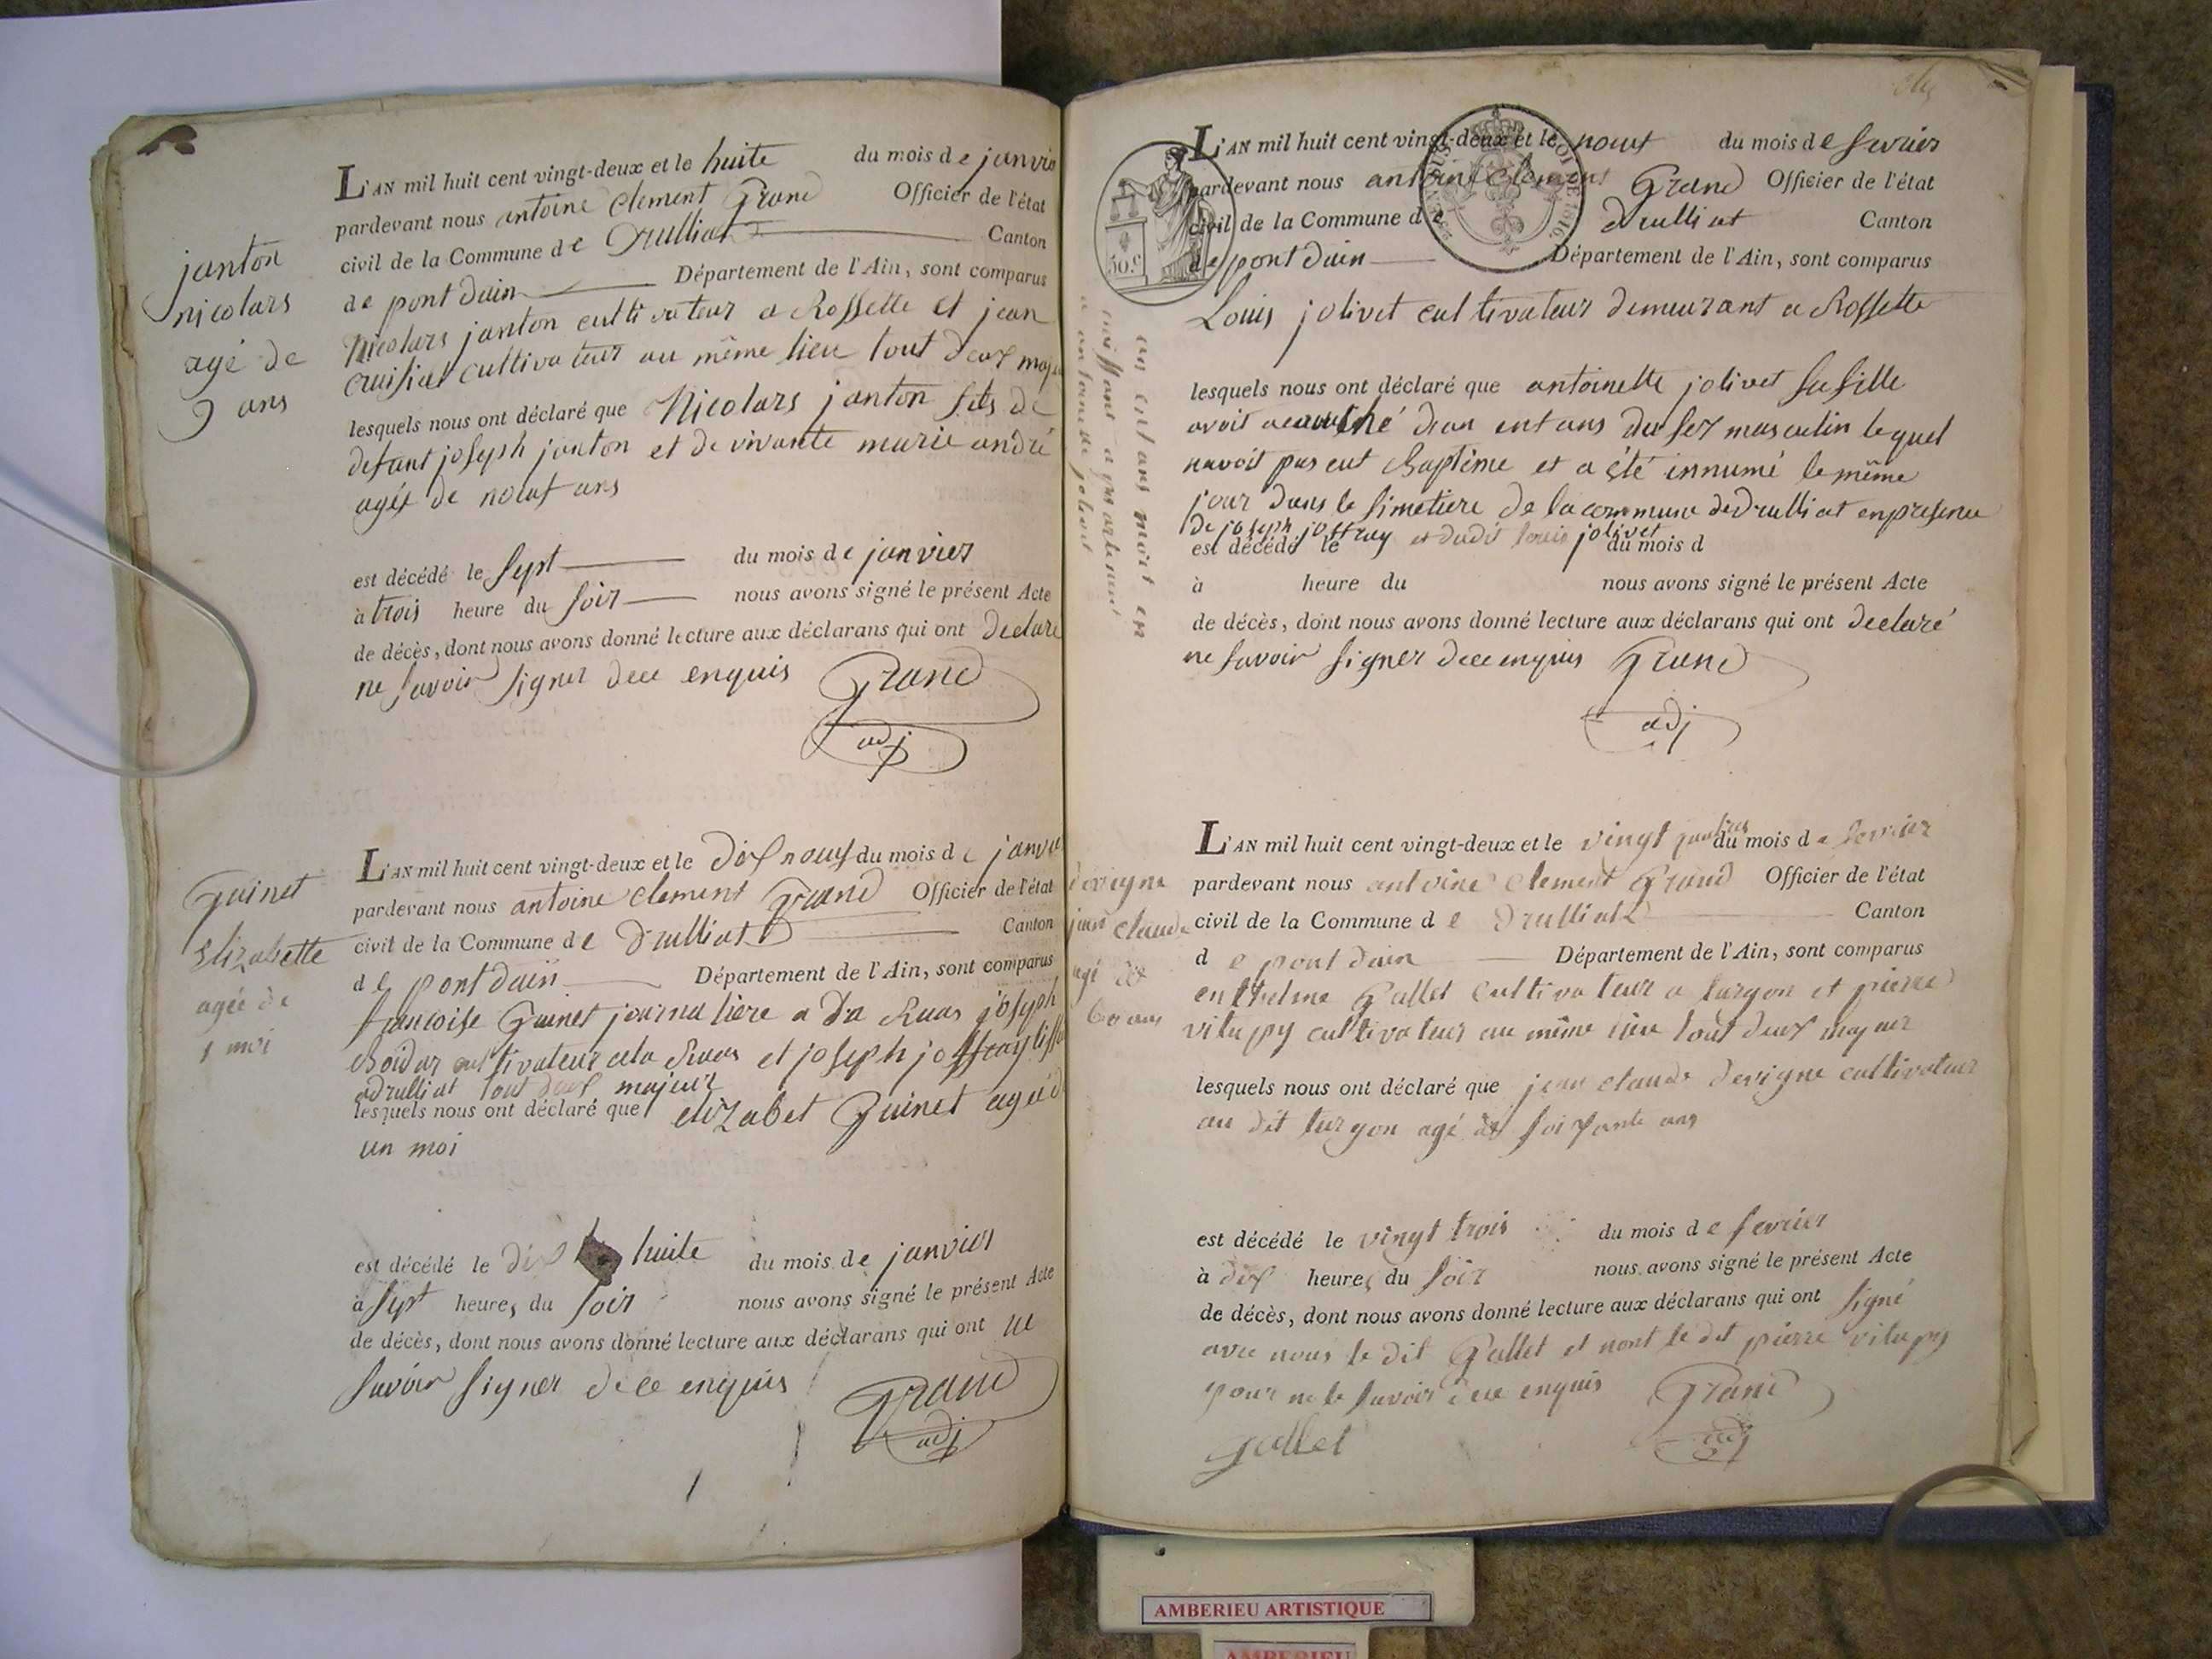 janton
nicolars
agé de
9 ans
L'AN mil huit cent vingt-deux et le huite du mois de janvie
pardevant nous antoine clement Grand Officier de l'état
civil de la Commune de Drulliat Canton
de pont dain Département de l'Ain, sont comparus
Nicolars janton cultivateur a Rossette et jean
cruisiat cultivateur au même lieu tout deux
lesquels nous ont déclaré que Nicolars janton fils de
defant joseph janton et de vivante marie andré
agés de noeuf ans
est décédé le sept du mois de janvier
à trois heure du soir nous avons signé le présent Acte
de décès, dont nous avons donné lecture aux déclarans qui ont declaré
ne savoir signer dece enquis Grand
adj
Guinet
Elizabette
agée de
1 moi
L'AN mil huit cent vingt-deux et le dix noeuf du mois de janvie
pardevant nous antoine clement Grand Officier de l'état
civil de la Commune de Drulliat Canton
de pont dain Département de l'Ain, sont comparus
francoise Guinet journaliere a Ruas joseph
Boidar cultivateur Ruas et joseph joffray
adrulliat tout deux majeur
lesquels nous ont déclaré que elizabet Guinet ageé d
un moi
est décédé le dix huite du mois de janvier
à sept heures du soir nous avons signé le présent Acte
de décès, dont nous avons donné lecture aux déclarans qui ont ne
savoir signer dece enquis Grand
adj
50.c
L'AN mil huit cent vingt-deux et le noeuf du mois de fevrier
pardevant nous antoine clement Grand Officier de l'état
civil de la Commune de drulliat Canton
de pont dain Département de l'Ain, sont comparus
Louis jolivet cultivateur demeurant a Rossette
un enfans mort en
naissant a
a antoinette jolivet
lesquels nous ont déclaré que antoinette jolivet sa fille
avoit acouché dun enfans du sex masculin lequel
navoit pas eut Baptême et a été innumé le même
jour dans le simetiere de la commune de Drulliat en presence
de joseph joffray et dudit louis jolivet
est décédé le du mois d
à heure du nous avons signé le présent Acte
de décès, dont nous avons donné lecture aux déclarans qui ont declaré
ne savoir signer dece enquis Grand
adj
devigne
jean claude
agé de
60 ans
L'AN mil huit cent vingt-deux et le vingt quatres du mois de fevrier
pardevant nous antoine clement Grand Officier de l'état
civil de la Commune de Drulliat Canton
de pont dain Département de l'Ain, sont comparus
enthelme Gallet cultivateur a turgon et pierre
vitupy cultivateur au même lieu tout deux majeur
lesquels nous ont déclaré que jean claude devigne cultivateur
au dit turgon agé de soixante ans
est décédé le vingt trois du mois de fevrier
à dix heures du soir nous avons signé le présent Acte
de décès, dont nous avons donné lecture aux déclarans qui ont signé
avec nous le dit Gallet et nont le dit pierre vitupy
pour ne le savoir dece enquis Grand
gallet adj
AMBERIEU ARTISTIQUE
AMBERIEU